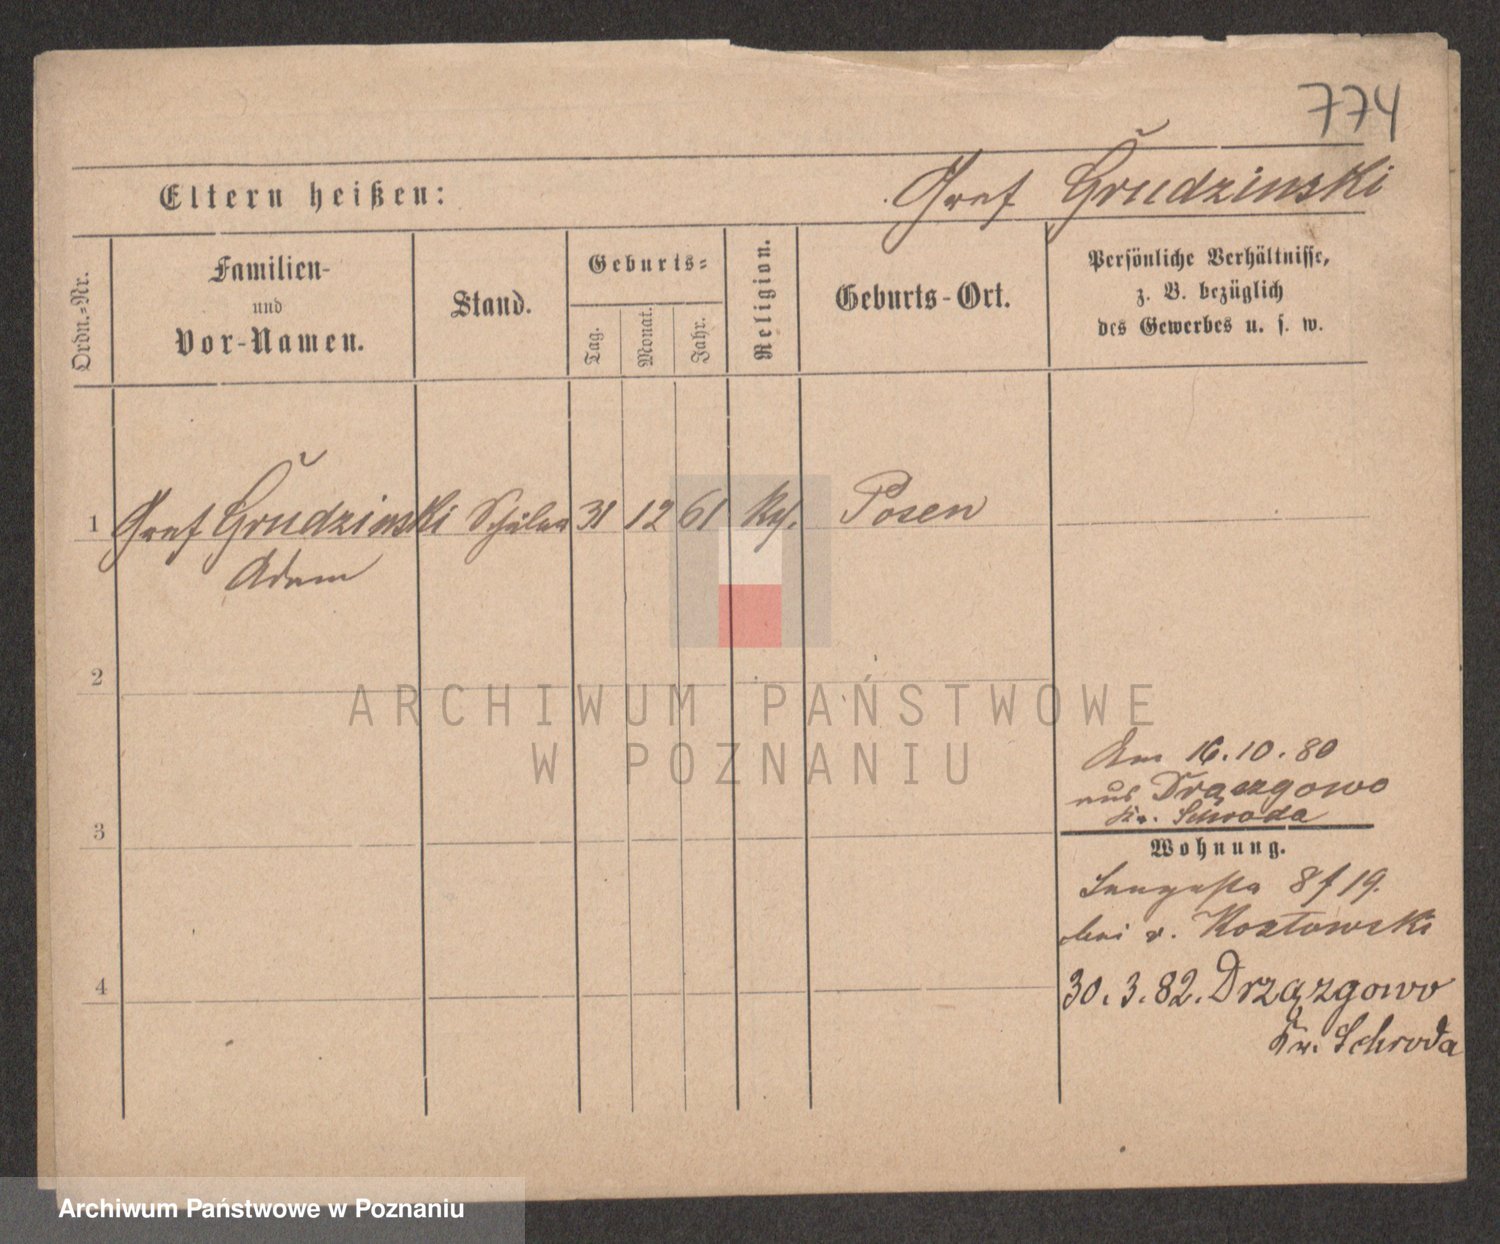 774
Graf Grudzinski
Eltern heißen:
Ordn.-Nr.
Familien-
und
Vor-Namen.
Stand.
Geburts-
Tag.
Monat.
Jahr.
Religion.
Geburts-Ort.
Persönliche Verhältnisse,
z. B. bezüglich
des Gewerbes u. s. w.
1 Graf Grudzinski Schüler 31 12 61 Posen
Adam
2
3
4
Am 16.10.80
aus Drązgowo
Kr. Schroda
Wohnung.
8 / 19.
bei v. Kozłowski
30.3.82. Drzązgowo
Kr. Schroda
ARCHIWUM PAŃSTWOWE
W POZNANIU
Archiwum Państwowe w Poznaniu